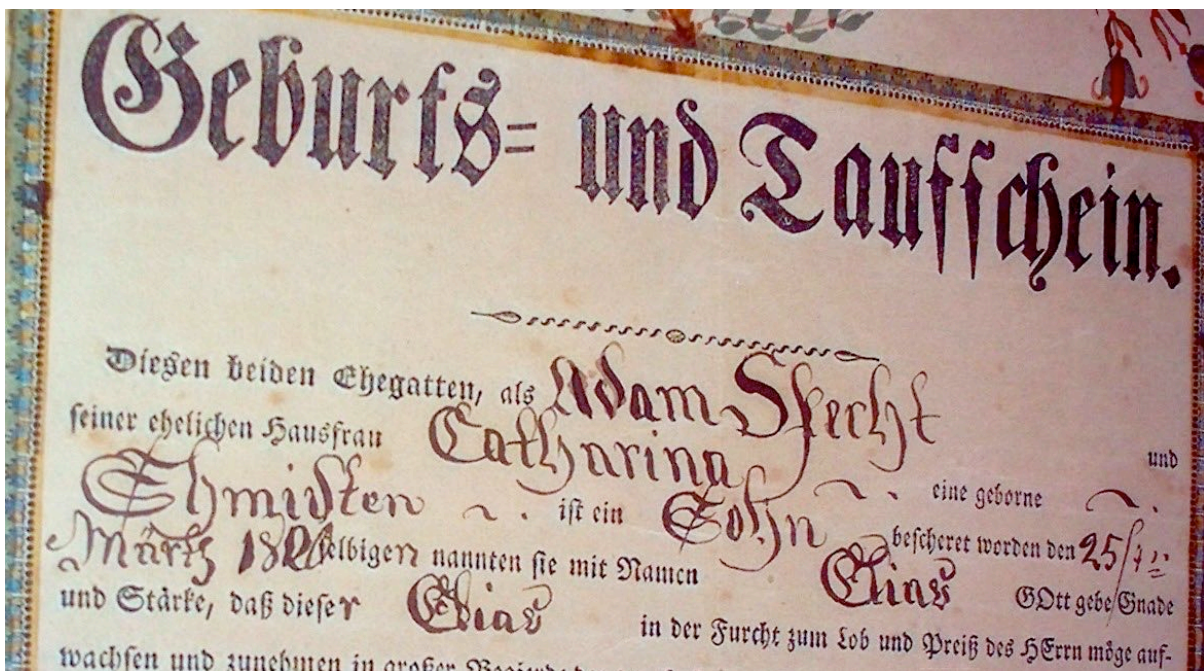 Geburts= und Taufschein.
Diesen beiden Ehegatten, als Adam Specht und
seiner ehelichen Hausfrau Catharina eine geborne
Schmidten ist ein Sohn bescheret worden den 25
Märtz selbigen nannten sie mit Namen Elias GOtt gebe Gnade
und Stärke, daß dieser Elias in der Furcht zum Lob und Preiß des HErrn möge auf-
wachsen und zunehmen in großer